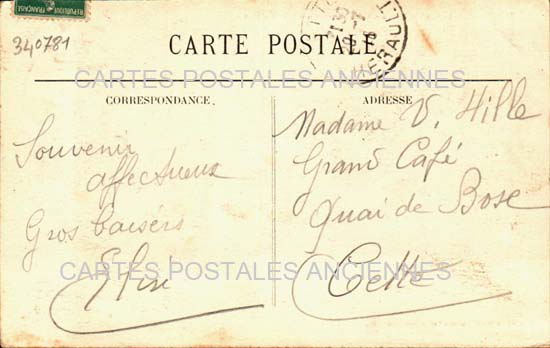 REPUBLIQUE FRANÇAISE
340781
HERAULT
CARTE POSTALE
CARTES POSTALES ANCIENNES
CORRESPONDANCE.
ADRESSE
Souvenir
affectueux
Gros baisers
Madame V. Hille
Grand Café
Quai de Bosc
Cette
CARTES POSTALES ANCIENNES